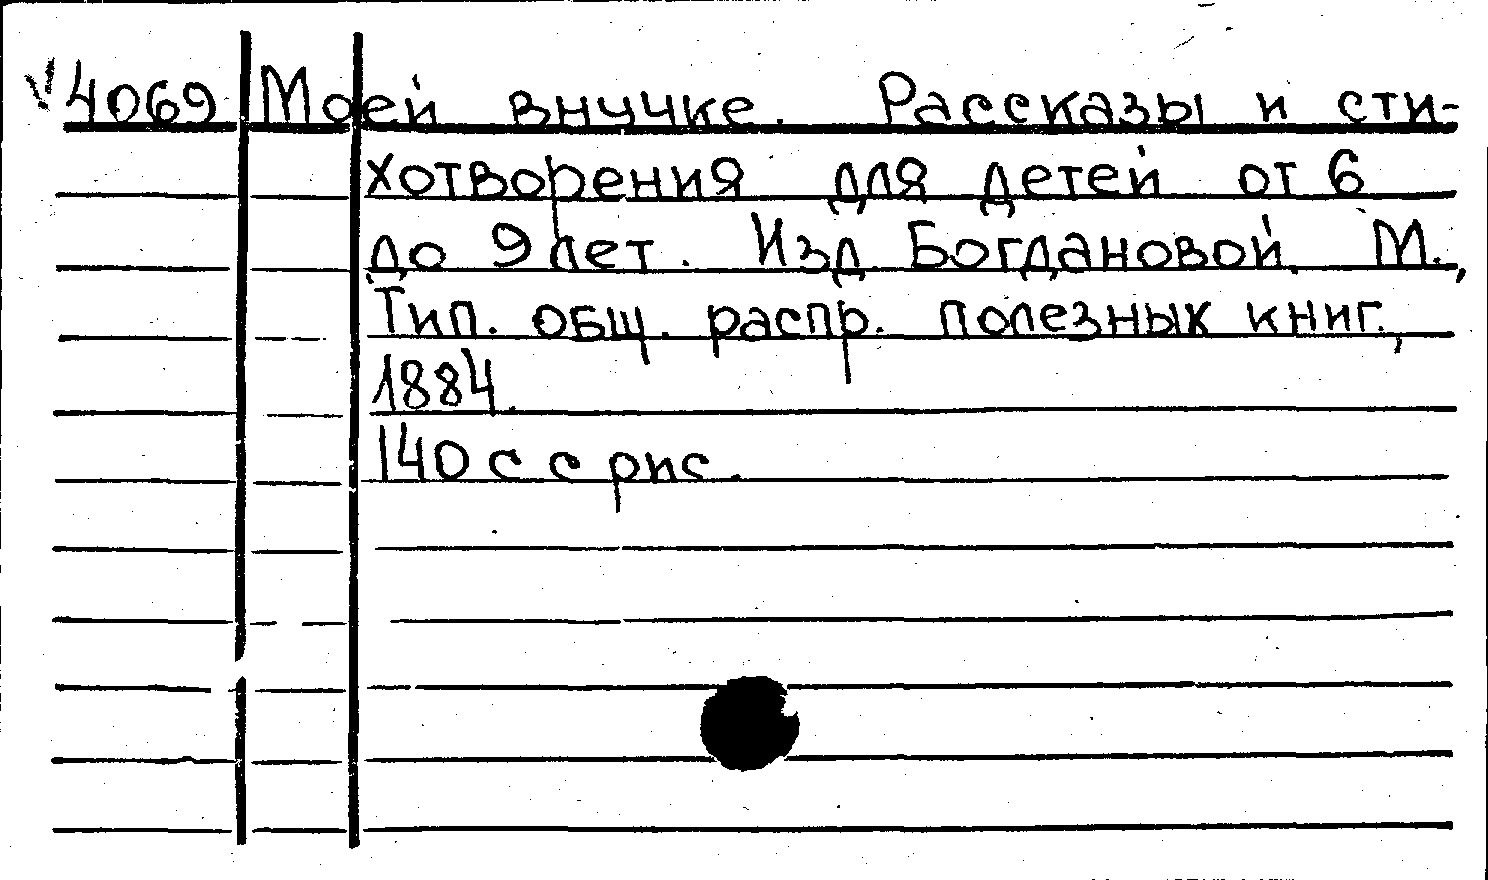 4069 Моей внучке. Рассказы и сти-
хотворения для детей от 6
до 9 лет. Изд Богдановой. М.,
Тип. общ. распр. полезных книг.,
1884.
140 с с рис.